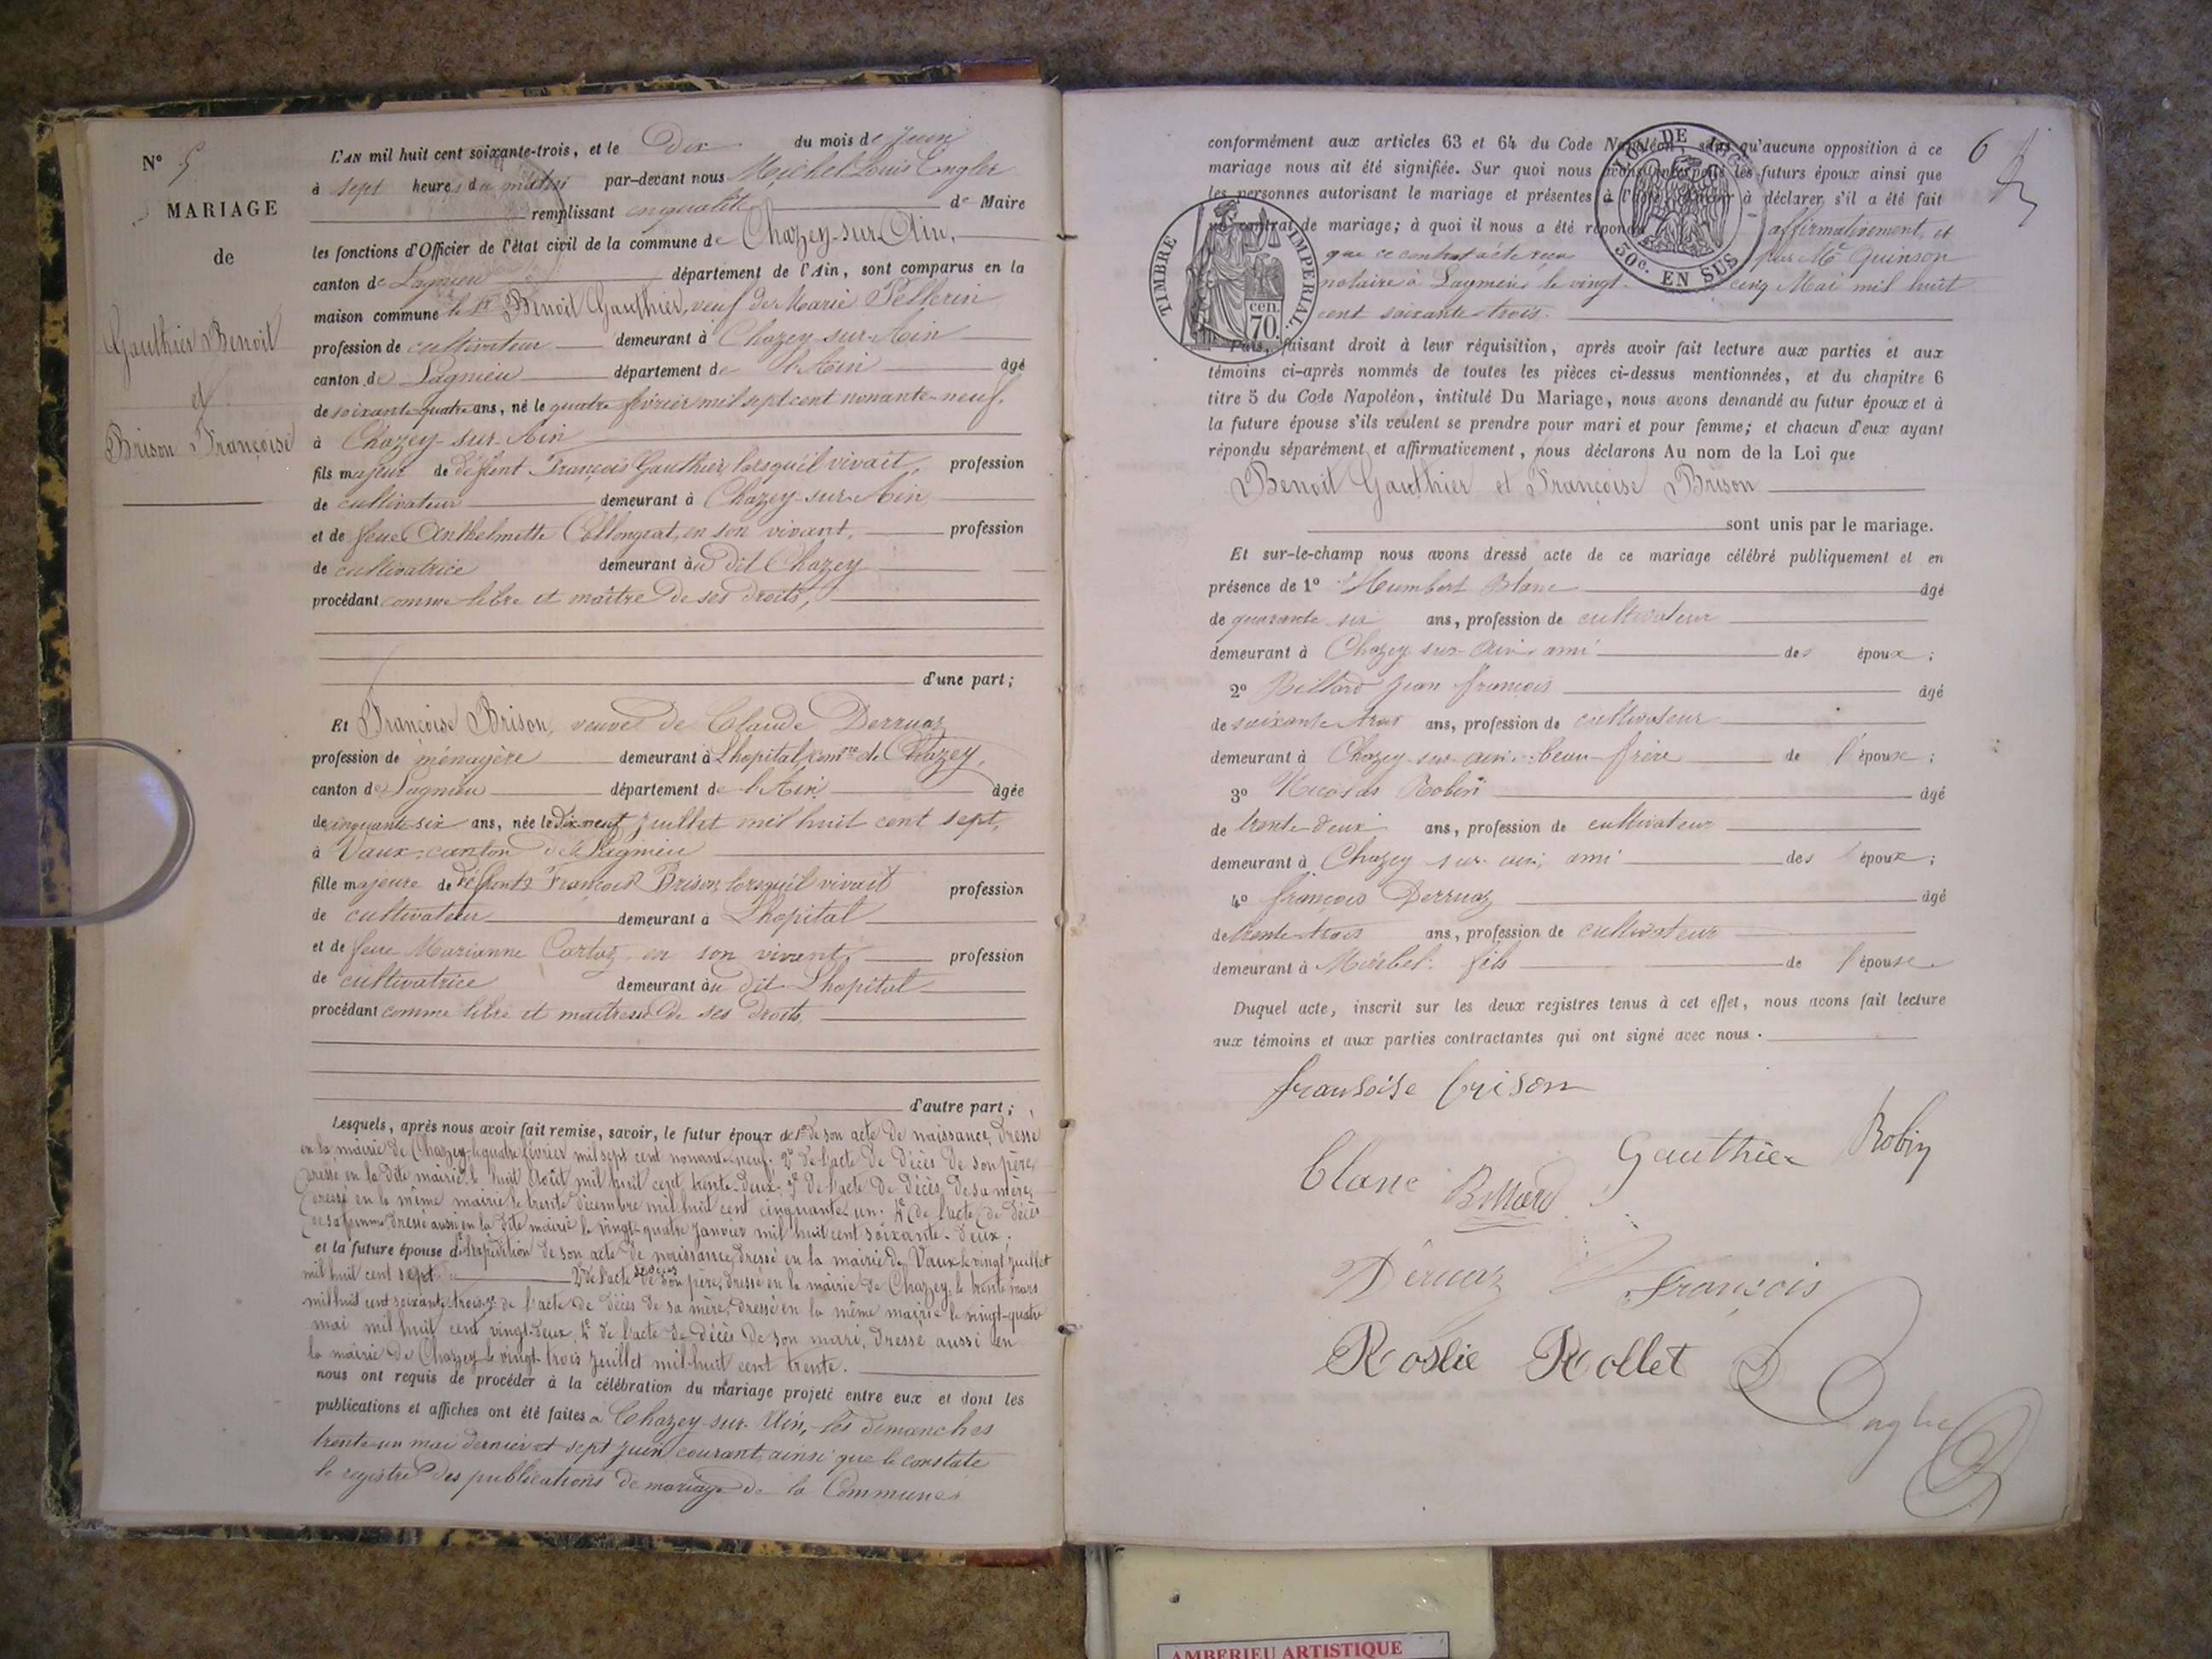 N° 5
MARIAGE
de
Gauthier Benoit
et
Brison Françoise
L'AN mil huit cent soixante-trois, et le Dix du mois de Juin
à sept heures du matin par-devant nous Michel Louis Engler
remplissant en qualité de Maire
les fonctions d'Officier de l'état civil de la commune de Chazey-sur-Ain,
canton de Lagnieu département de l'Ain, sont comparus en la
maison commune le Sr Benoit Gauthier, veuf de Marie Pellerin
profession de cultivateur demeurant à Chazey-sur-Ain
canton de Lagnieu département de l'Ain âgé
de soixante-quatre ans, né le quatre février mil sept cent nonante-neuf,
à Chazey-sur-Ain
fils majeur de défunt François Gauthier, lorsqu'il vivait, profession
de cultivateur demeurant à Chazey-sur-Ain
et de feue Anthelmette Collongeat, en son vivant, profession
de cultivatrice demeurant au dit Chazey
procédant comme libre et maître de ses droits,
d'une part;
Et Françoise Brison, veuve de Claude Derruaz
profession de ménagère demeurant à Lhopital, comne de Chazey,
canton de Lagnieu département de l'Ain âgée
de cinquante-six ans, née le dix neuf juillet mil huit cent sept,
à Vaux, canton de Lagnieu
fille majeure de défunt François Brison, lorsqu'il vivait profession
de cultivateur demeurant à Lhopital
et de feue Marianne Cartaz, en son vivant, profession
de cultivatrice demeurant au dit Lhopital
procédant comme libre et maitresse de ses droits,
d'autre part;
Lesquels, après nous avoir fait remise, savoir, le futur époux de 1° de son acte de naissance, dressé
en la mairie de Chazey, le quatre février mil sept cent nonante-neuf. 2° de l'acte de décès de son père,
dressé en la dite mairie le huit août mil huit cent trente-deux; 3° de l'acte de décès de sa mère,
dressé en la même mairie le trente décembre mil huit cent cinquante un; 4° de l'acte de décès
de sa femme dressé aussi en la dite mairie le vingt-quatre janvier mil huit cent soixante-deux;
et la future épouse de l'expédition de son acte de naissance, dressé en la mairie de Vaux le vingt juillet
mil huit cent sept. 2° de l'acte de décès de son père, dressé en la mairie de Chazey, le trente mars
mil huit cent soixante-trois, 3° de l'acte de décès de sa mère, dressé en la même mairie le vingt-quatre
mai mil huit cent vingt-deux, 4° de l'acte de décès de son mari, dressé aussi en
la mairie de Chazey le vingt-trois juillet mil huit cent trente.
nous ont requis de procéder à la célébration du mariage projeté entre eux et dont les
publications et affiches ont été faites à Chazey-sur-Ain, les dimanches
trente-un mai dernier et sept juin courant, ainsi que le constate
le registre des publications de mariage de la Commune
6
conformément aux articles 63 et 64 du Code Napoléon, sans qu'aucune opposition à ce
mariage nous ait été signifiée. Sur quoi nous avons interpellé les futurs époux ainsi que
les personnes autorisant le mariage et présentes à l'acte à déclarer s'il a été fait
un contrat de mariage; à quoi il nous a été répondu affirmativement, et
que ce contrat a été reçu par Me Quinson
notaire à Lagnieu, le vingt-cinq Mai mil huit
cent soixante-trois.
TIMBRE IMPERIAL
cen. 70.
LOI DE
50c. EN SUS
Puis, faisant droit à leur réquisition, après avoir fait lecture aux parties et aux
témoins ci-après nommés de toutes les pièces ci-dessus mentionnées, et du chapitre 6
titre 5 du Code Napoléon, intitulé Du Mariage, nous avons demandé au futur époux et à
la future épouse s'ils veulent se prendre pour mari et pour femme; et chacun d'eux ayant
répondu séparément et affirmativement, nous déclarons Au nom de la Loi que
Benoit Gauthier et Françoise Brison
sont unis par le mariage.
Et sur-le-champ nous avons dressé acte de ce mariage célébré publiquement et en
présence de 1° Humbert Blanc âgé
de quarante six ans, profession de cultivateur
demeurant à Chazey-sur-Ain, ami des époux;
2° Billard Jean françois âgé
de soixante-trois ans, profession de cultivateur
demeurant à Chazey-sur-ain, beau-frère de l'épouse;
3° Nicolas Robin âgé
de trente-deux ans, profession de cultivateur
demeurant à Chazey-sur-ain, ami des époux;
4° françois Derruaz âgé
de trente-trois ans, profession de cultivateur
demeurant à Miribel, fils de l'épouse
Duquel acte, inscrit sur les deux registres tenus à cet effet, nous avons fait lecture
aux témoins et aux parties contractantes qui ont signé avec nous.
fransoise brison
Gauthier Robin
blanc Billard
Déruaz françois
Roslie Rollet
Engler
AMBERIEU ARTISTIQUE